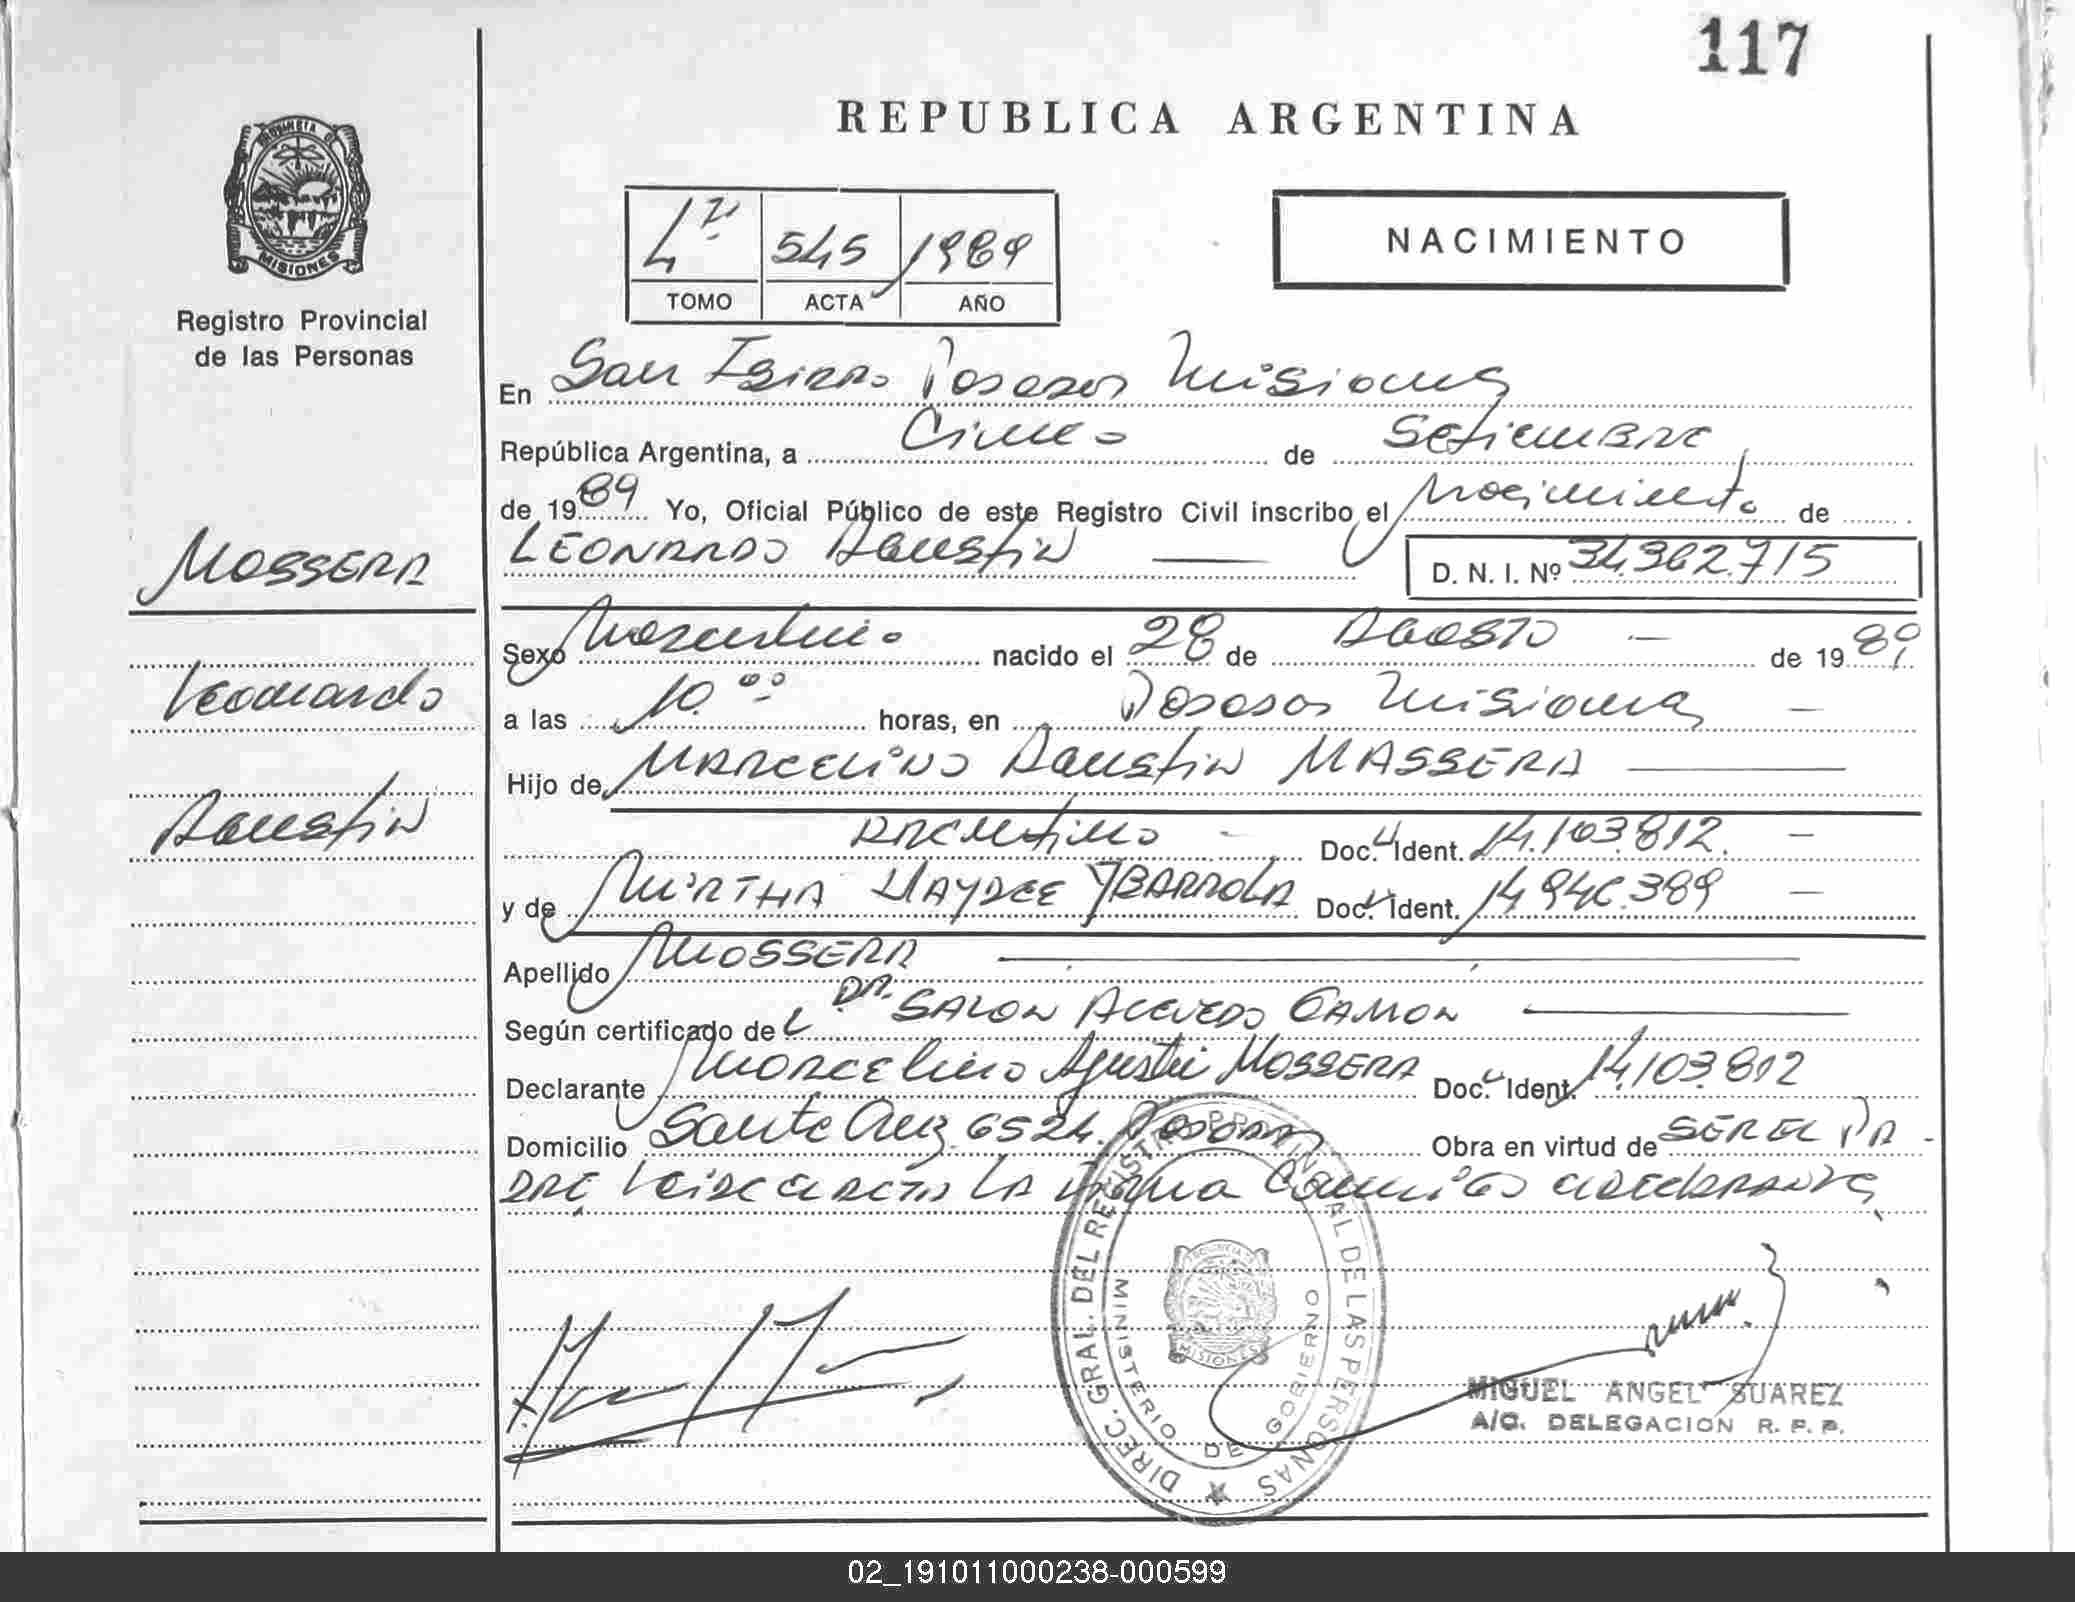 117
REPUBLICA ARGENTINA
PROVINCIA DE
MISIONES
Registro Provincial
de las Personas
4º 545 1989
TOMO ACTA AÑO
NACIMIENTO
En San Isidro Posadas Misiones
República Argentina, a Cinco de Setiembre
de 1989 Yo, Oficial Público de este Registro Civil inscribo el Nacimiento de
Massera
LEONARDO Agustin D. N. I. Nº 34.362.715
Sexo Masculino nacido el 28 de Agosto de 1989
Leonardo
a las 10.00 horas, en Posadas Misiones
Hijo de MARCELINO Agustin MASSERA
Agustin
Argentino Doc. Ident. 14.103.812.
y de MIRTHA HAYDEE YBARROLA Doc. Ident. 14.946.389
Apellido MASSERA
Según certificado de DR. SALON ACEVEDO RAMON
Declarante Marcelino Agustin MASSERA Doc. Ident. 14.103.812
Domicilio Santa Cruz 6524. Posadas Obra en virtud de SER EL PA-
DRE Leida el acta la firma Conmigo el declarante,
DIREC. GRAL. DEL REGISTRO PROVINCIAL DE LAS PERSONAS
MINISTERIO DE GOBIERNO
MISIONES
MIGUEL ANGEL SUAREZ
A/C. DELEGACION R. P. P.
02_191011000238-000599